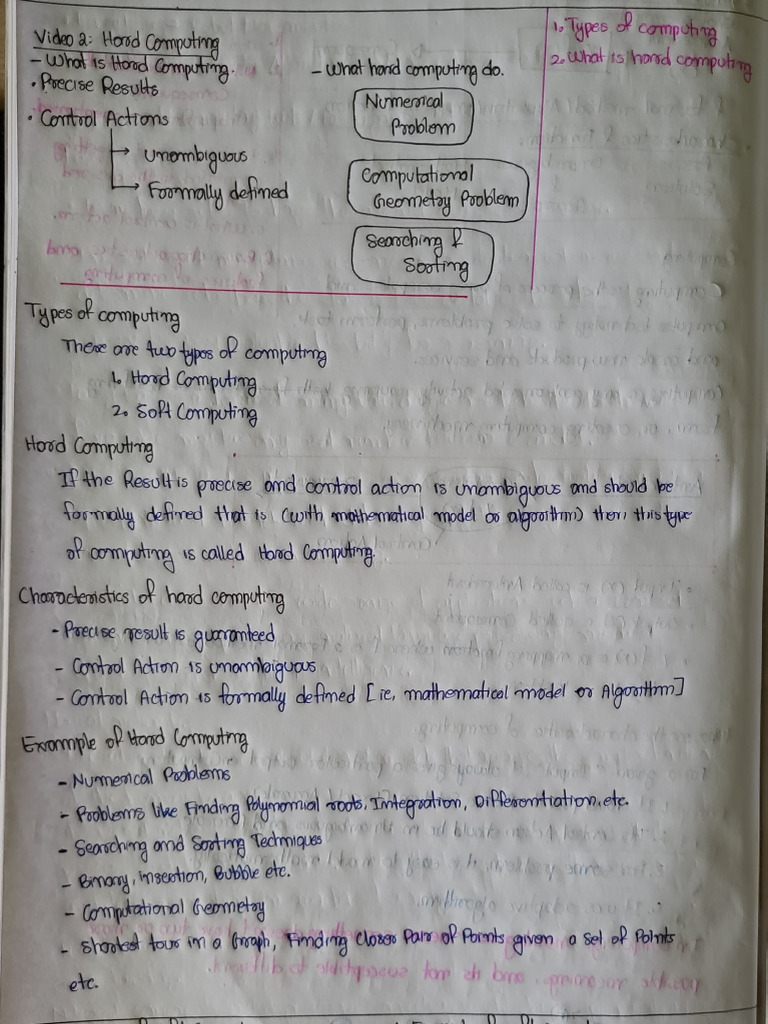 Video 2: Hard Computing
- What is Hard Computing.
• Precise Results
• Control Actions
→ Unambiguous
→ Formally defined
- What hard computing do.
Numerical
Problem
Computational
Geometry Problem
Searching &
Sorting
1. Types of computing
2. What is hard computing
Types of computing
There are two types of computing
1. Hard Computing
2. Soft Computing
Hard Computing
If the Result is precise and control action is unambiguous and should be
formally defined that is (with mathematical model or algorithm) then, this type
of computing is called Hard Computing.
Characteristics of hard computing
- Precise result is guaranteed
- Control Action is unambiguous
- Control Action is formally defined [ie, mathematical model or Algorithm]
Example of Hard Computing
- Numerical Problems
- Problems like Finding Polynomial roots, Integration, Differentiation, etc.
- Searching and Sorting Techniques
- Binary, insertion, Bubble etc.
- Computational Geometry
- Shortest tour in a Graph, Finding Closer Pair of Points given a set of Points
etc.